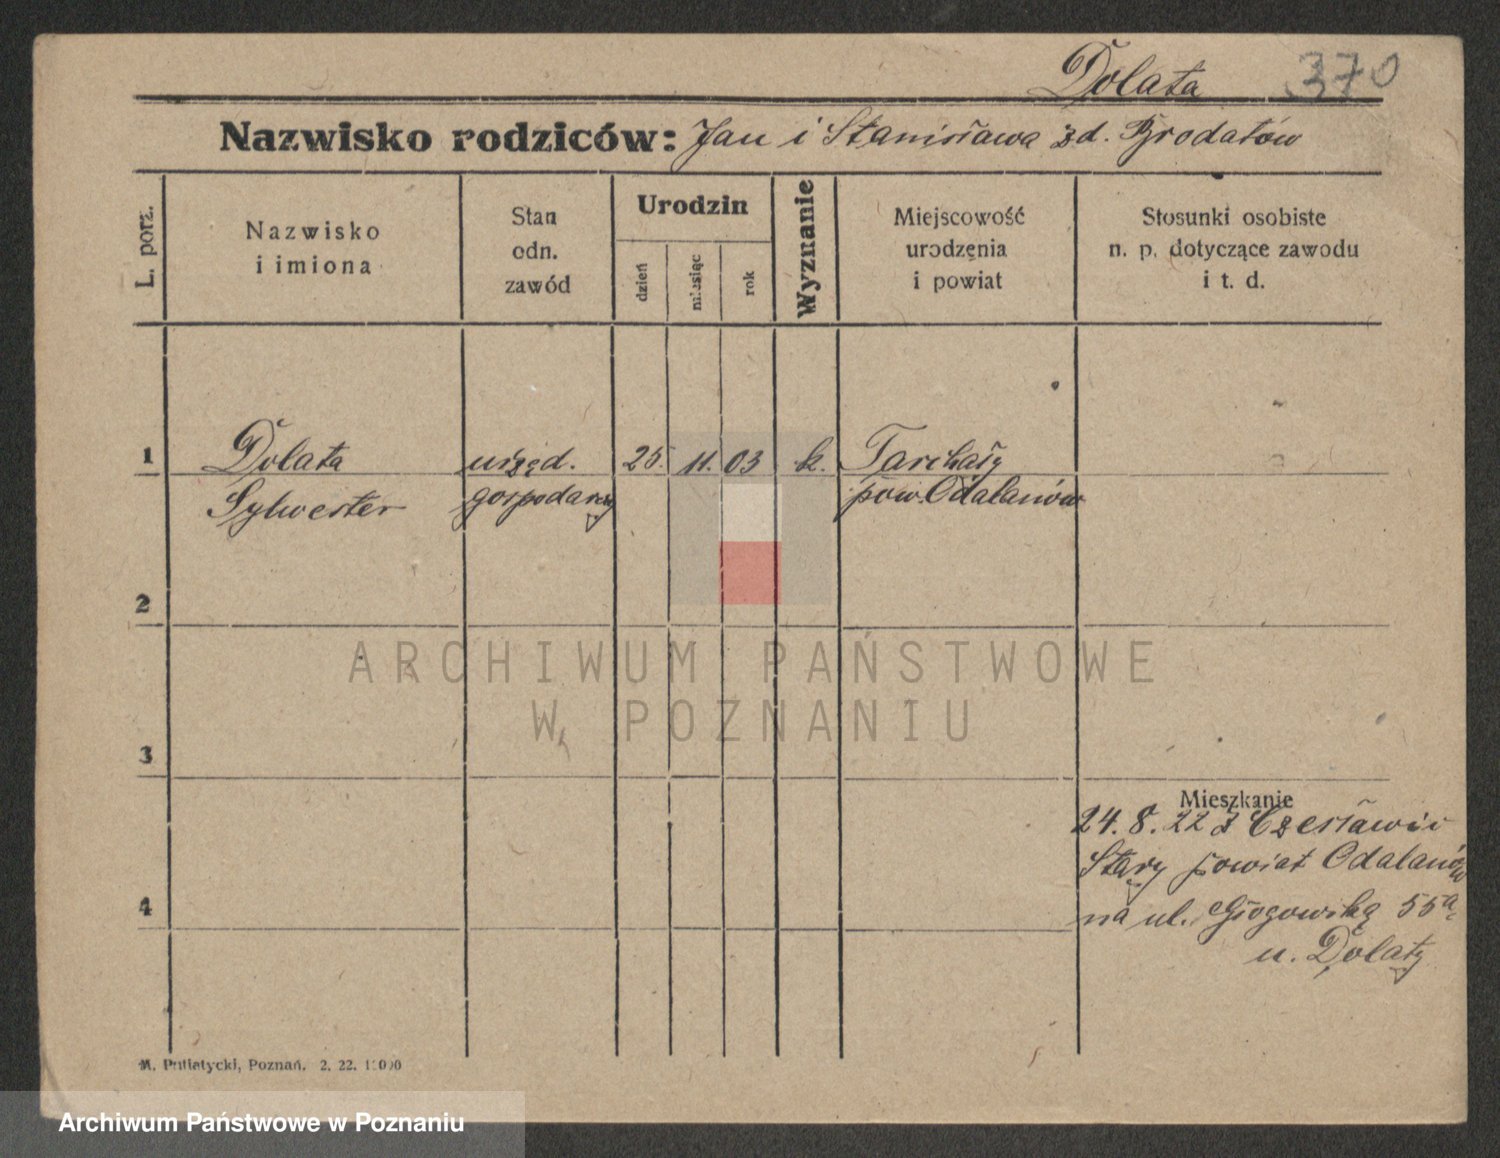 Dolata 370
Nazwisko rodziców: Jan i Stanisława zd. Brodatów
L. porz.
Nazwisko
i imiona
Stan
odn.
zawód
Urodzin
dzień
miesiąc
rok
Wyznanie
Miejscowość
urodzenia
i powiat
Stosunki osobiste
n. p. dotyczące zawodu
i t. d.
1 Dolata urzęd. 25. 11. 03 k. Tarchały
Sylwester gospodarczy pow. Odalanów
2
3
Mieszkanie
24. 8. 22 z Czesławic
Stary powiat Odalanów
4
na ul. Głogowską 55a
u. Dolaty
Poznań. 2. 22.
ARCHIWUM PAŃSTWOWE
W POZNANIU
Archiwum Państwowe w Poznaniu